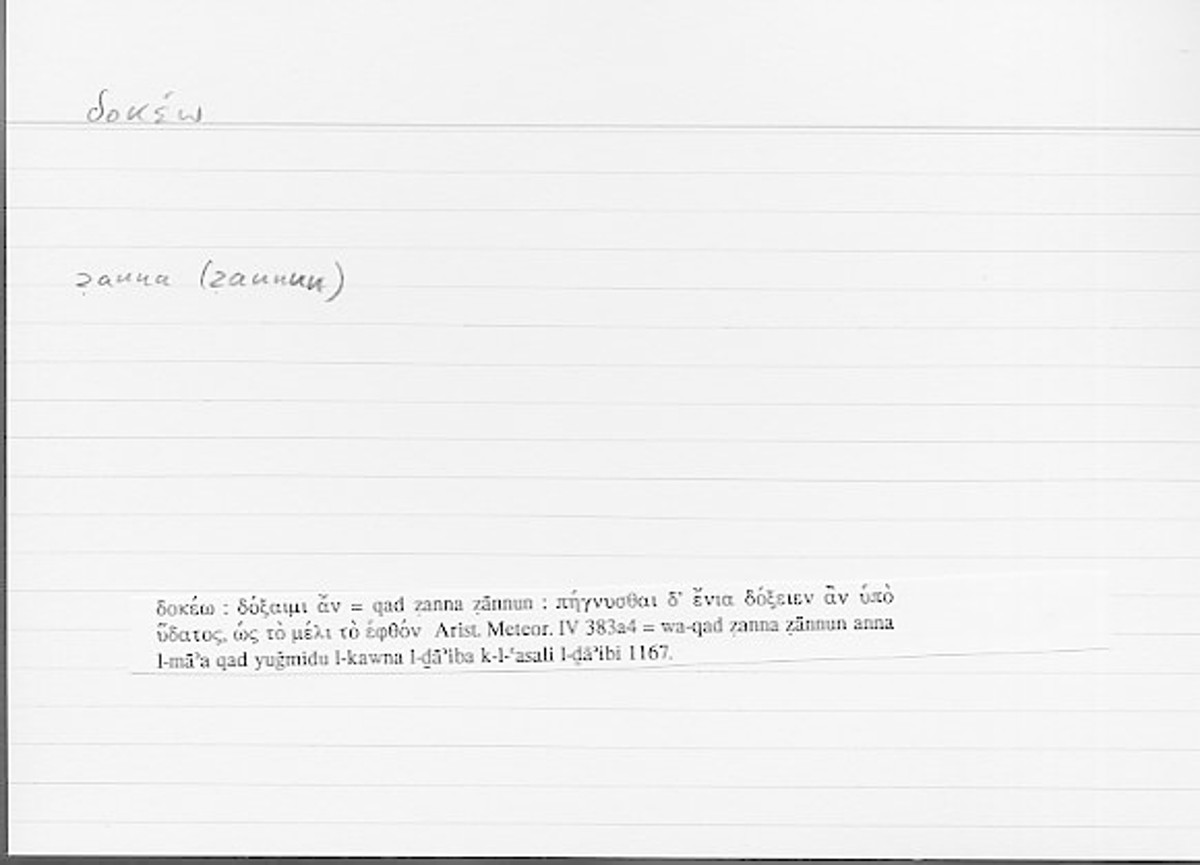 δοκέω
ẓanna (ẓannun)
δοκέω : δόξαιμι ἄν = qad ẓanna ẓānnun : πήγνυσθαι δ’ ἔνια δόξειεν ἂν ὑπὸ
ὕδατος, ὡς τὸ μέλι τὸ ἑφθόν Arist. Meteor. IV 383a4 = wa-qad ẓanna ẓānnun anna
l-māʾa qad yuǧmidu l-kawna l-ḏāʾiba k-l-ʿasali l-ḏāʾibi 1167.